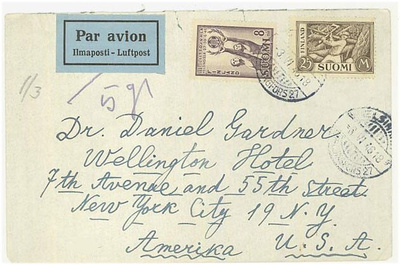 Par avion
Ilmaposti - Luftpost
8
SUOMI
FINLAND
25 M
SUOMI
Dr. Daniel Gardner
Wellington Hotel
7th Avenue and 55th Street
New York City 19 N.Y.
Amerika U.S.A.